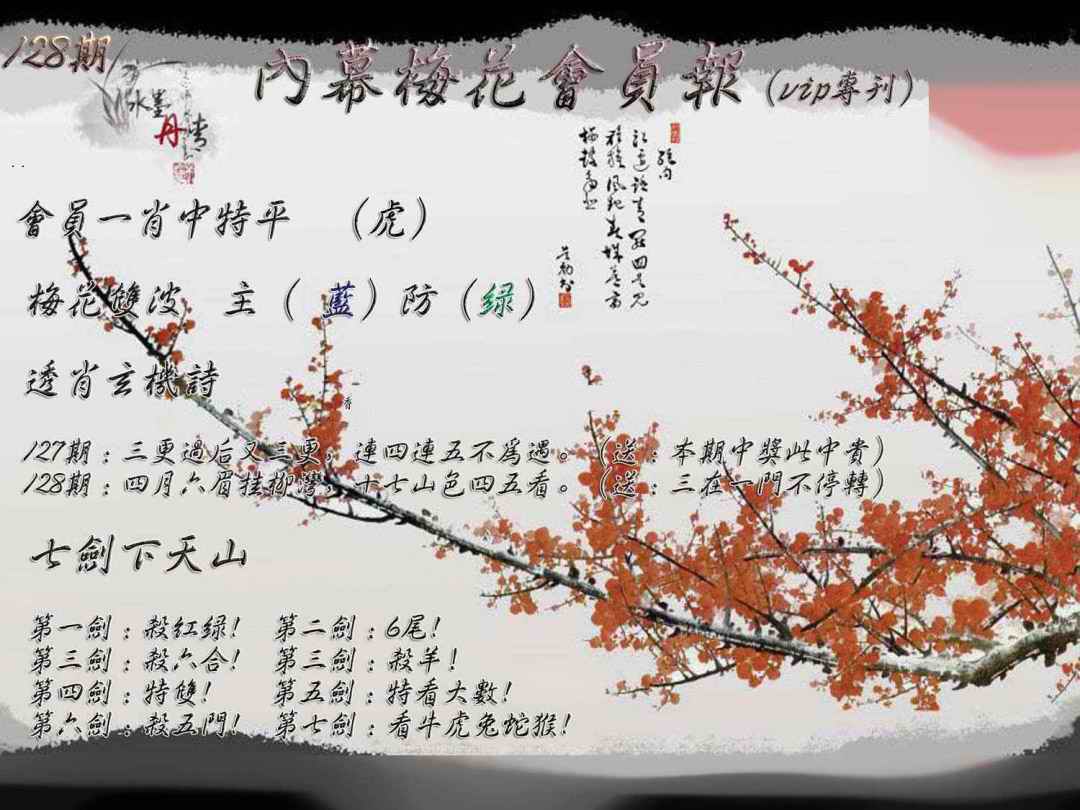 128期
內幕梅花會員報(vip專刊)
水墨
丹青
會員一肖中特平 (虎)
梅花雙波 主(藍)防(緑)
透肖玄機詩
香
127期:三更過后又三更,連四連五不爲過。(送:本期中獎此中貴)
128期:四月六眉挂柳灣,十七山色四五看。(送:三在一門不停轉)
七劍下天山
第一劍:殺紅緑! 第二劍:6尾!
第三劍:殺六合! 第三劍:殺羊!
第四劍:特雙! 第五劍:特看大數!
第六劍:殺五門! 第七劍:看牛虎兔蛇猴!